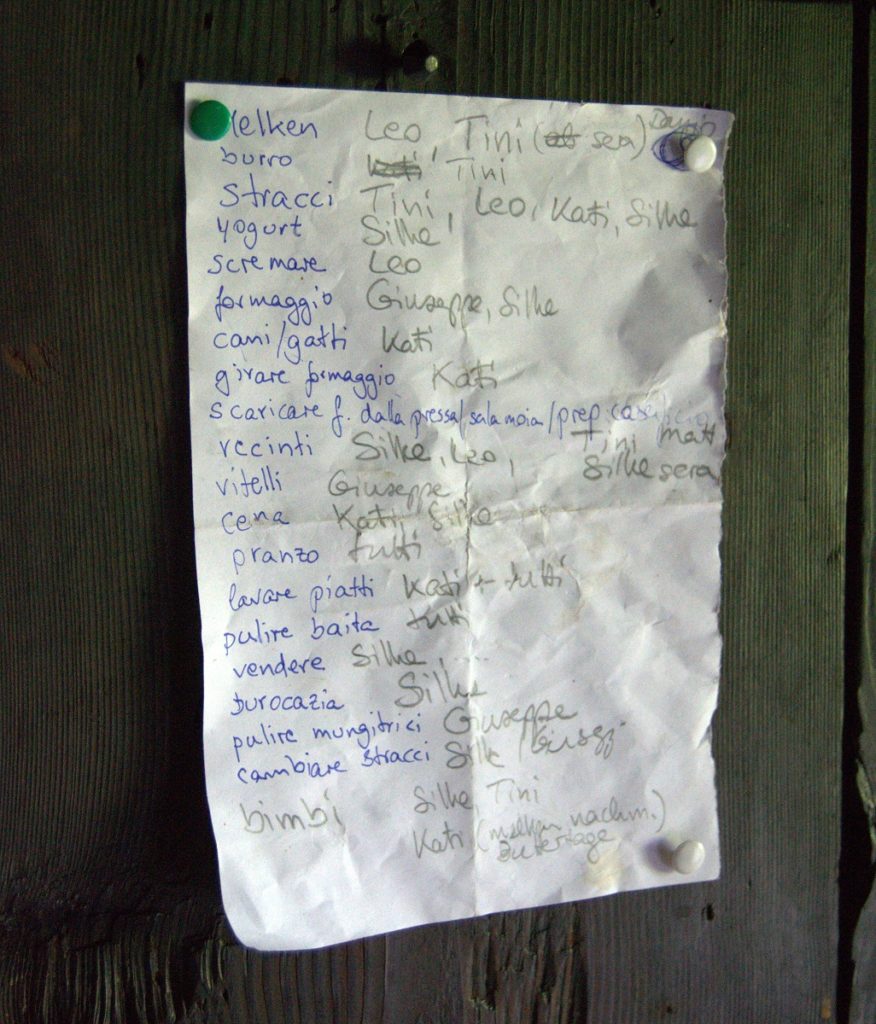 Melken Leo, Tini (sera)
burro Tini
stracci Tini, Leo, Kati, Silke
yogurt Silke
scremare Leo
formaggio Giuseppe, Silke
cani/gatti Kati
girare formaggio Kati
scaricare f. dalla pressa/salamoia/prep caseificio
recinti Silke, Leo, Tini matt
vitelli Giuseppe Silke sera
cena Kati, Silke
pranzo tutti
lavare piatti Kati + tutti
pulire baita tutti
vendere Silke, ...
burocazia Silke
pulire mungitrici Giuseppe
cambiare stracci Silke /
bimbi Silke, Tini
Kati (melken nachm.)